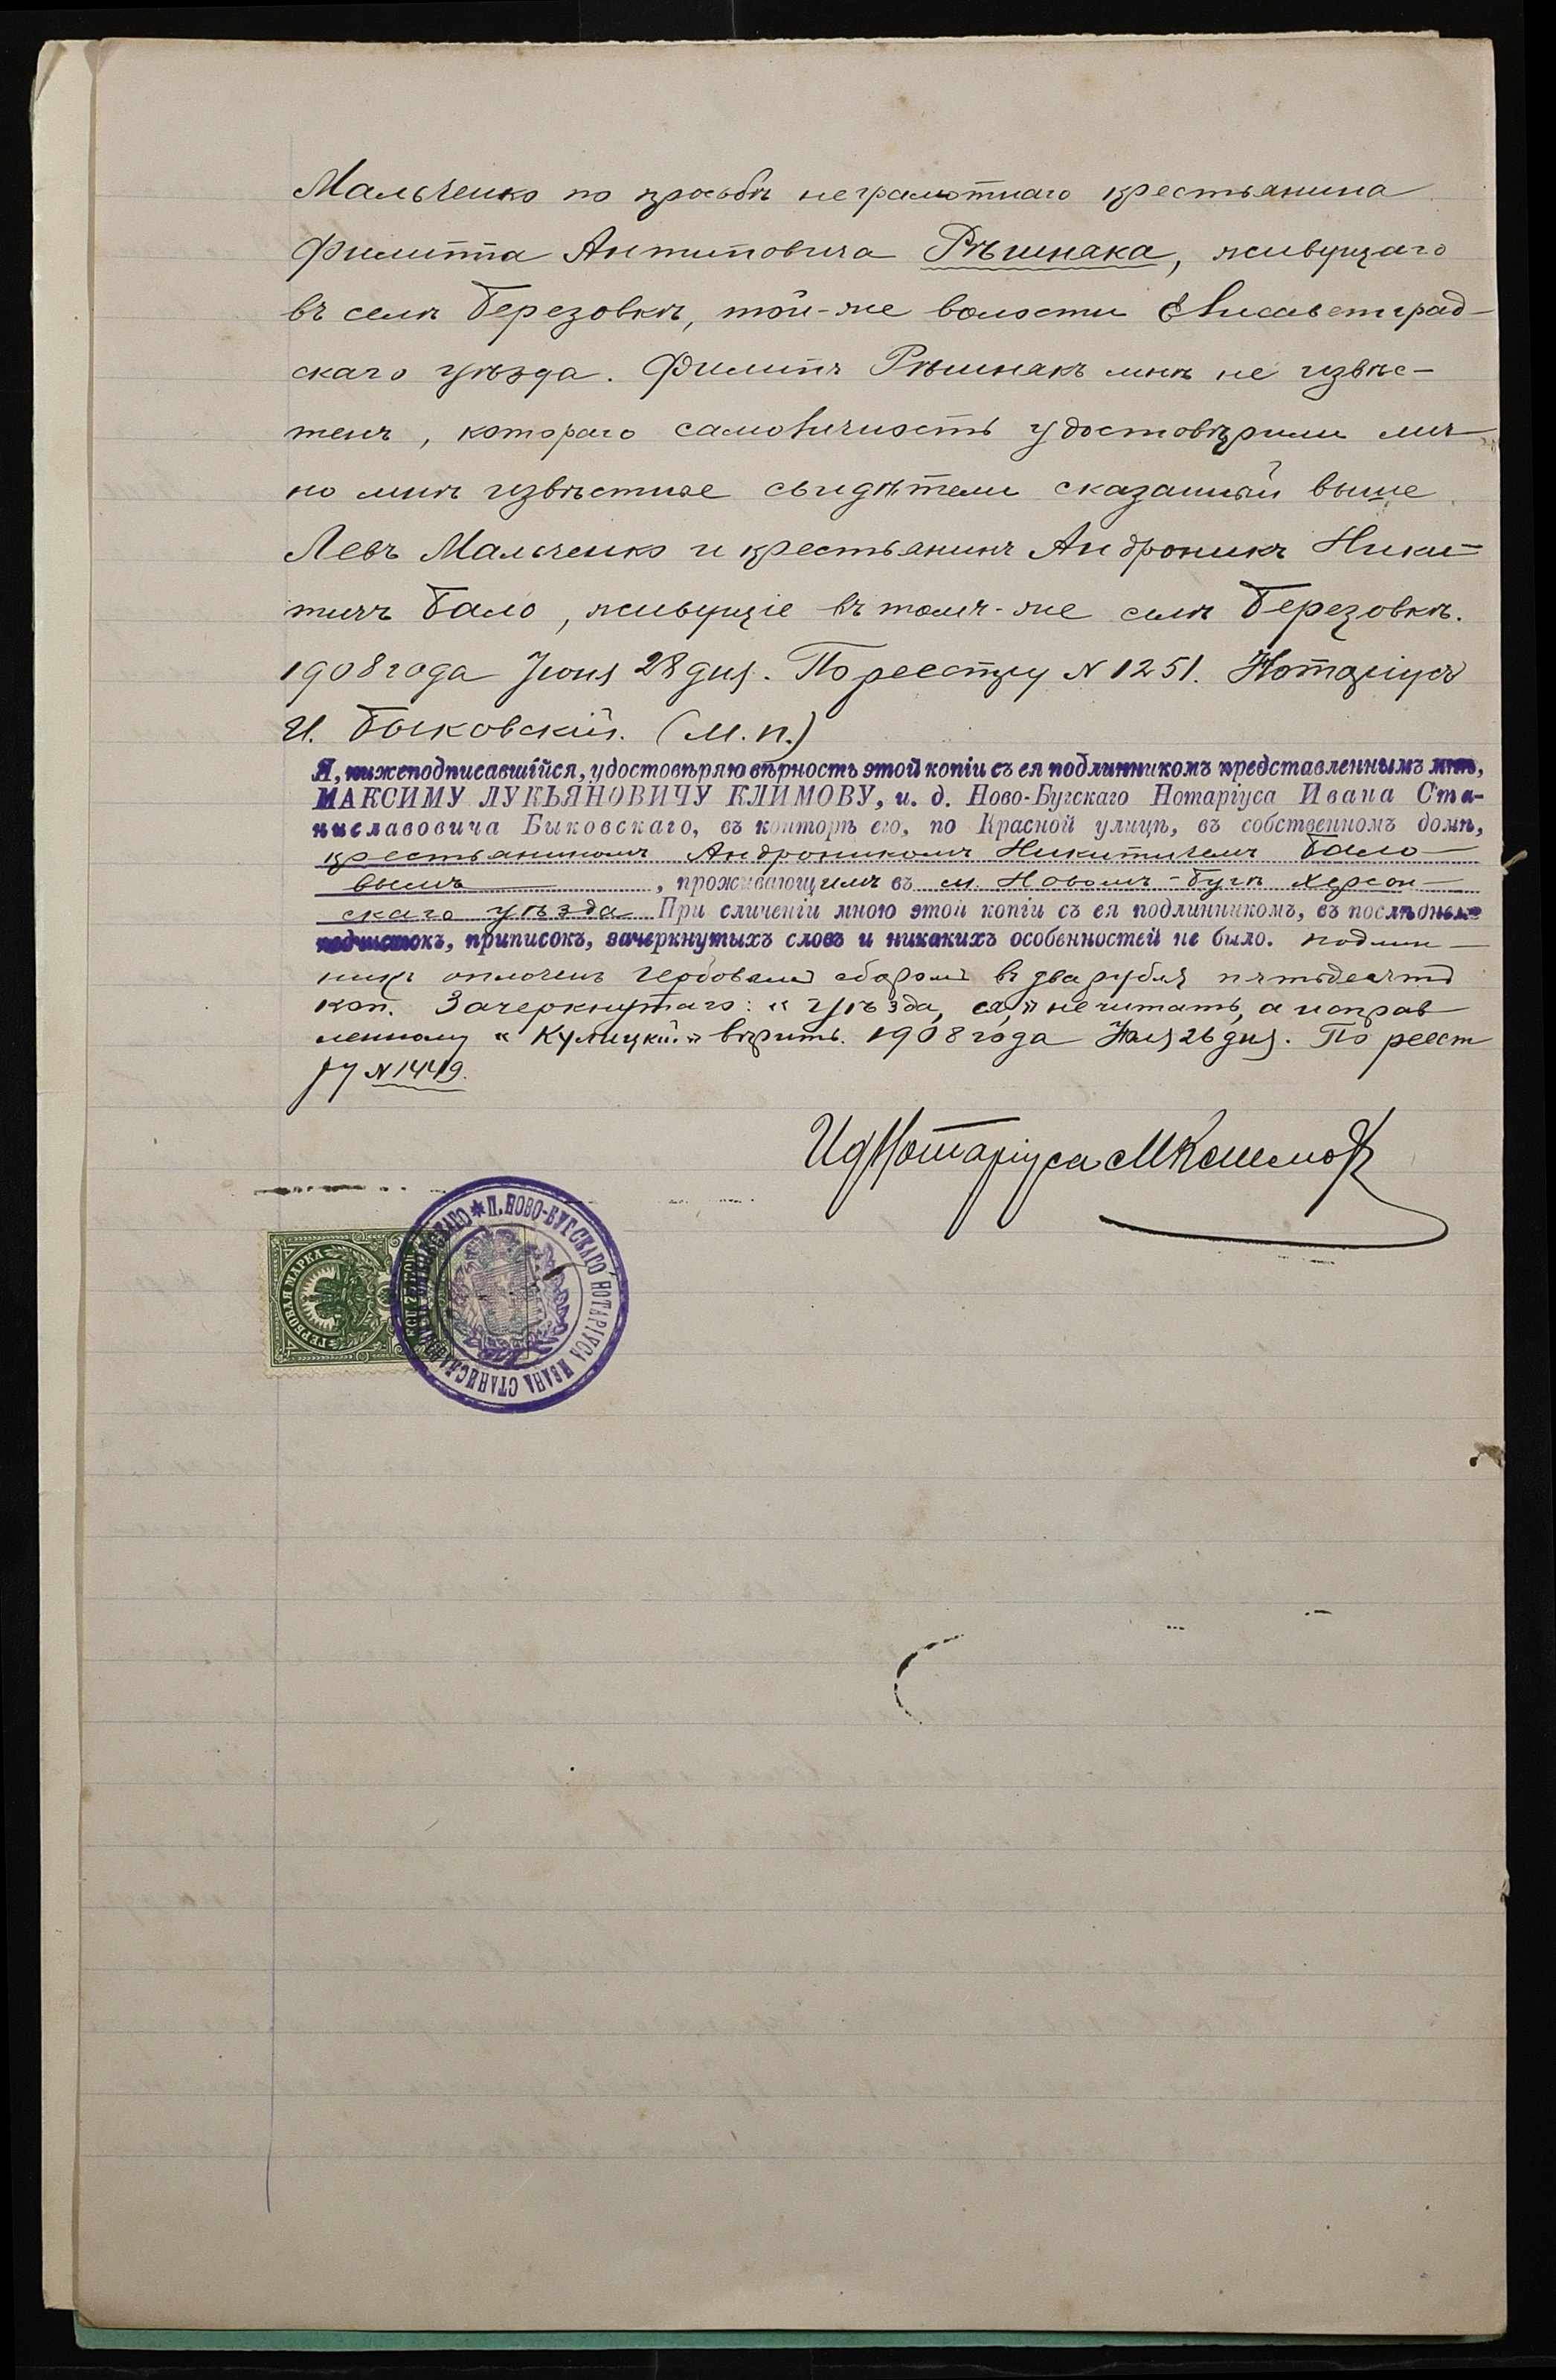 Мальченко по просьбѣ неграмотнаго крестьянина
Филиппа Антиповича Рѣшняка, живущаго
въ селѣ Березовкѣ, той-же волости Елисаветград-
скаго уѣзда. Филиппъ Рѣшнякъ мнѣ не извѣс-
тенъ, котораго самоличность удостовѣрили лич-
но мнѣ извѣстные свидѣтели сказанный выше
Левъ Мальченко и крестьянинъ Андроникъ Ники-
тичъ Бало, живущіе въ томъ-же селѣ Березовкѣ.
1908 года Іюня 28 дня. По реестру № 1251. Нотаріусъ
И. Быковскій. (М. П.)
Я, нижеподписавшійся, удостовѣряю вѣрность этой копіи съ ея подлинникомъ представленнымъ мнѣ,
МАКСИМУ ЛУКЬЯНОВИЧУ КЛИМОВУ, и. д. Ново-Бугскаго Нотаріуса Ивана Ста-
ниславовича Быковскаго, въ конторѣ его, по Красной улицѣ, въ собственномъ домѣ,
крестьяниномъ Андроникомъ Никитичемъ Бало-
вымъ, проживающимъ въ м. Новомъ-Бугѣ Херсон-
скаго уѣзда При сличеніи мною этой копіи съ ея подлинникомъ, въ послѣднемъ
подчистокъ, приписокъ, зачеркнутыхъ словъ и никакихъ особенностей не было. Подлин-
никъ оплоченъ гербовымъ сборомъ въ два рубля пятьдесятъ
коп. Зачеркнутаго: „уѣзда, ся," не читать, а исправ
ленному „Кулицкій" вѣрить. 1908 года Іюля 26 дня. По реест
ру № 1449.
ИдНотаріуса МКлимовъ
ГЕРБОВАЯ МАРКА
П. НОВО-БУГСКАГО НОТАРІУСА ИВАНА СТАНИСЛАВОВИЧА БЫКОВСКАГО